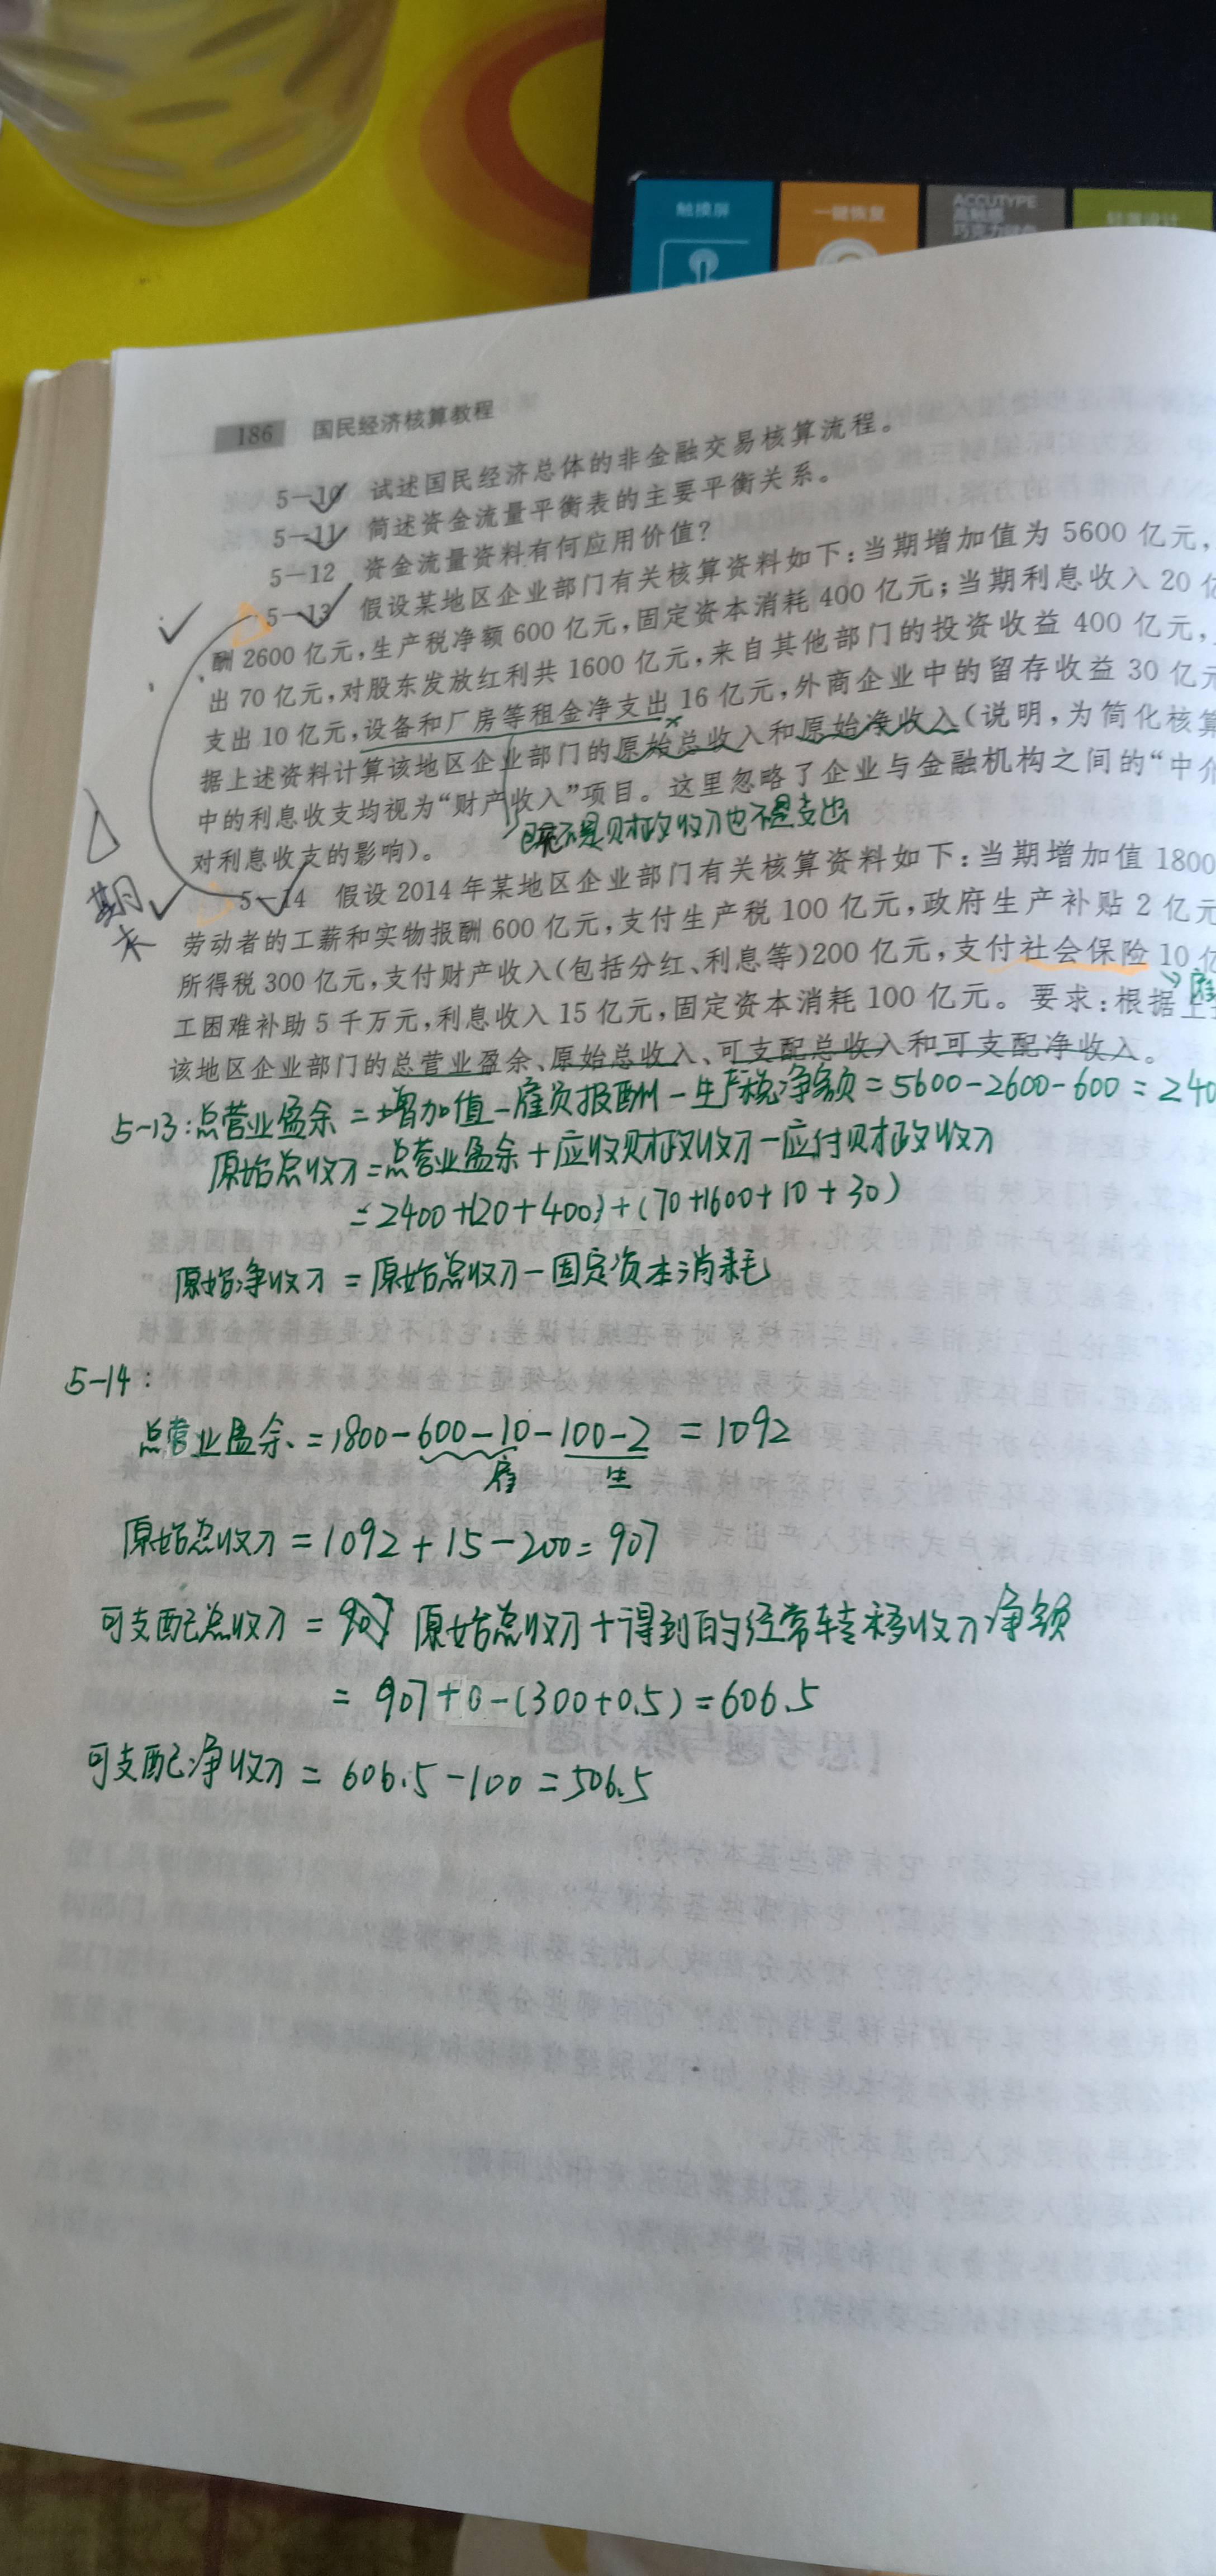 触摸屏
一键恢复
ACCUTYPE
高触感
巧克力键盘
轻薄设计
186 国民经济核算教程
5—10 试述国民经济总体的非金融交易核算流程。
5—11 简述资金流量平衡表的主要平衡关系。
5—12 资金流量资料有何应用价值?
5—13 假设某地区企业部门有关核算资料如下:当期增加值为 5600 亿元,
酬 2600 亿元,生产税净额 600 亿元,固定资本消耗 400 亿元;当期利息收入 20 亿
出 70 亿元,对股东发放红利共 1600 亿元,来自其他部门的投资收益 400 亿元,
支出 10 亿元,设备和厂房等租金净支出 16 亿元,外商企业中的留存收益 30 亿元
据上述资料计算该地区企业部门的原始总收入和原始净收入(说明,为简化核算
中的利息收支均视为“财产收入”项目。这里忽略了企业与金融机构之间的“中介
既不是财政收入也不是支出
对利息收支的影响)。
期末
5—14 假设 2014 年某地区企业部门有关核算资料如下:当期增加值 1800
劳动者的工薪和实物报酬 600 亿元,支付生产税 100 亿元,政府生产补贴 2 亿元
所得税 300 亿元,支付财产收入(包括分红、利息等)200 亿元,支付社会保险 10 亿
→雇
工困难补助 5 千万元,利息收入 15 亿元,固定资本消耗 100 亿元。要求:根据上
该地区企业部门的总营业盈余、原始总收入、可支配总收入和可支配净收入。
5-13:总营业盈余=增加值-雇员报酬-生产税净额=5600-2600-600=240
原始总收入=总营业盈余+应收财政收入-应付财政收入
=2400+(20+400)+(70+1600+10+30)
原始净收入=原始总收入-固定资本消耗
5-14:
总营业盈余=1800-600-10-100-2=1092
雇 生
原始总收入=1092+15-200=907
可支配总收入=907 原始总收入+得到的经常转移收入净额
=907+0-(300+0.5)=606.5
可支配净收入=606.5-100=506.5